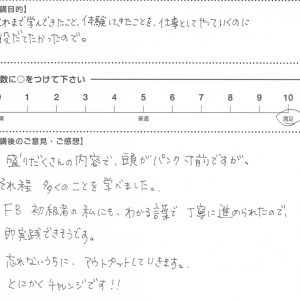 講目的】
れまで学んできたこと、体験してきたことを、仕事としてやっていくのに
役だてたかったので。
数に○をつけて下さい
0 1 2 3 4 5 6 7 8 9 10
満 普通 満足
講後のご意見・ご感想】
盛りだくさんの内容で、頭がパンク寸前ですが、
それ程 多くのことを学べました。
FB 初級者の私にも、わかる語で 丁寧に進められたので、
即実践できそうです。
忘れないうちに、アウトプットしていきます。
とにかく チャレンジです!!